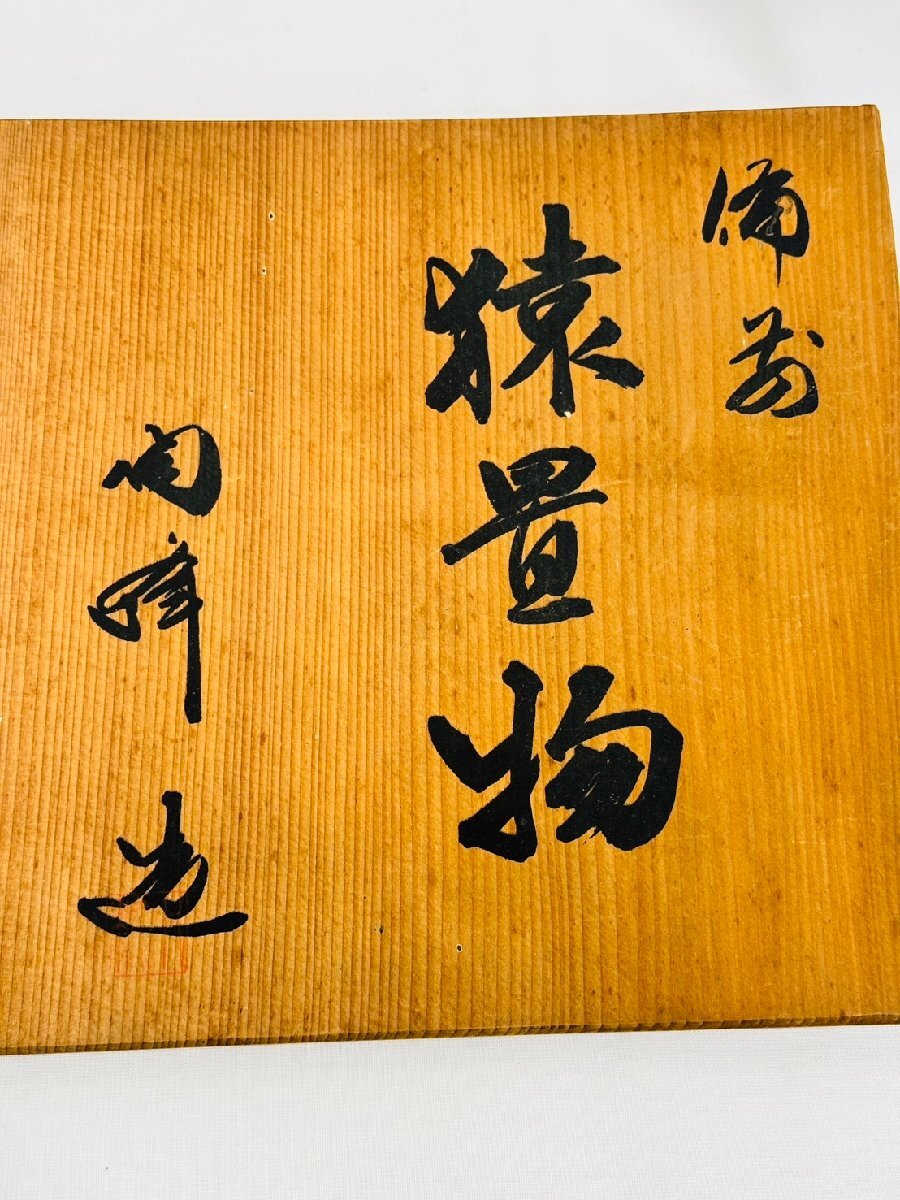 備前
猿置物
陶峰造